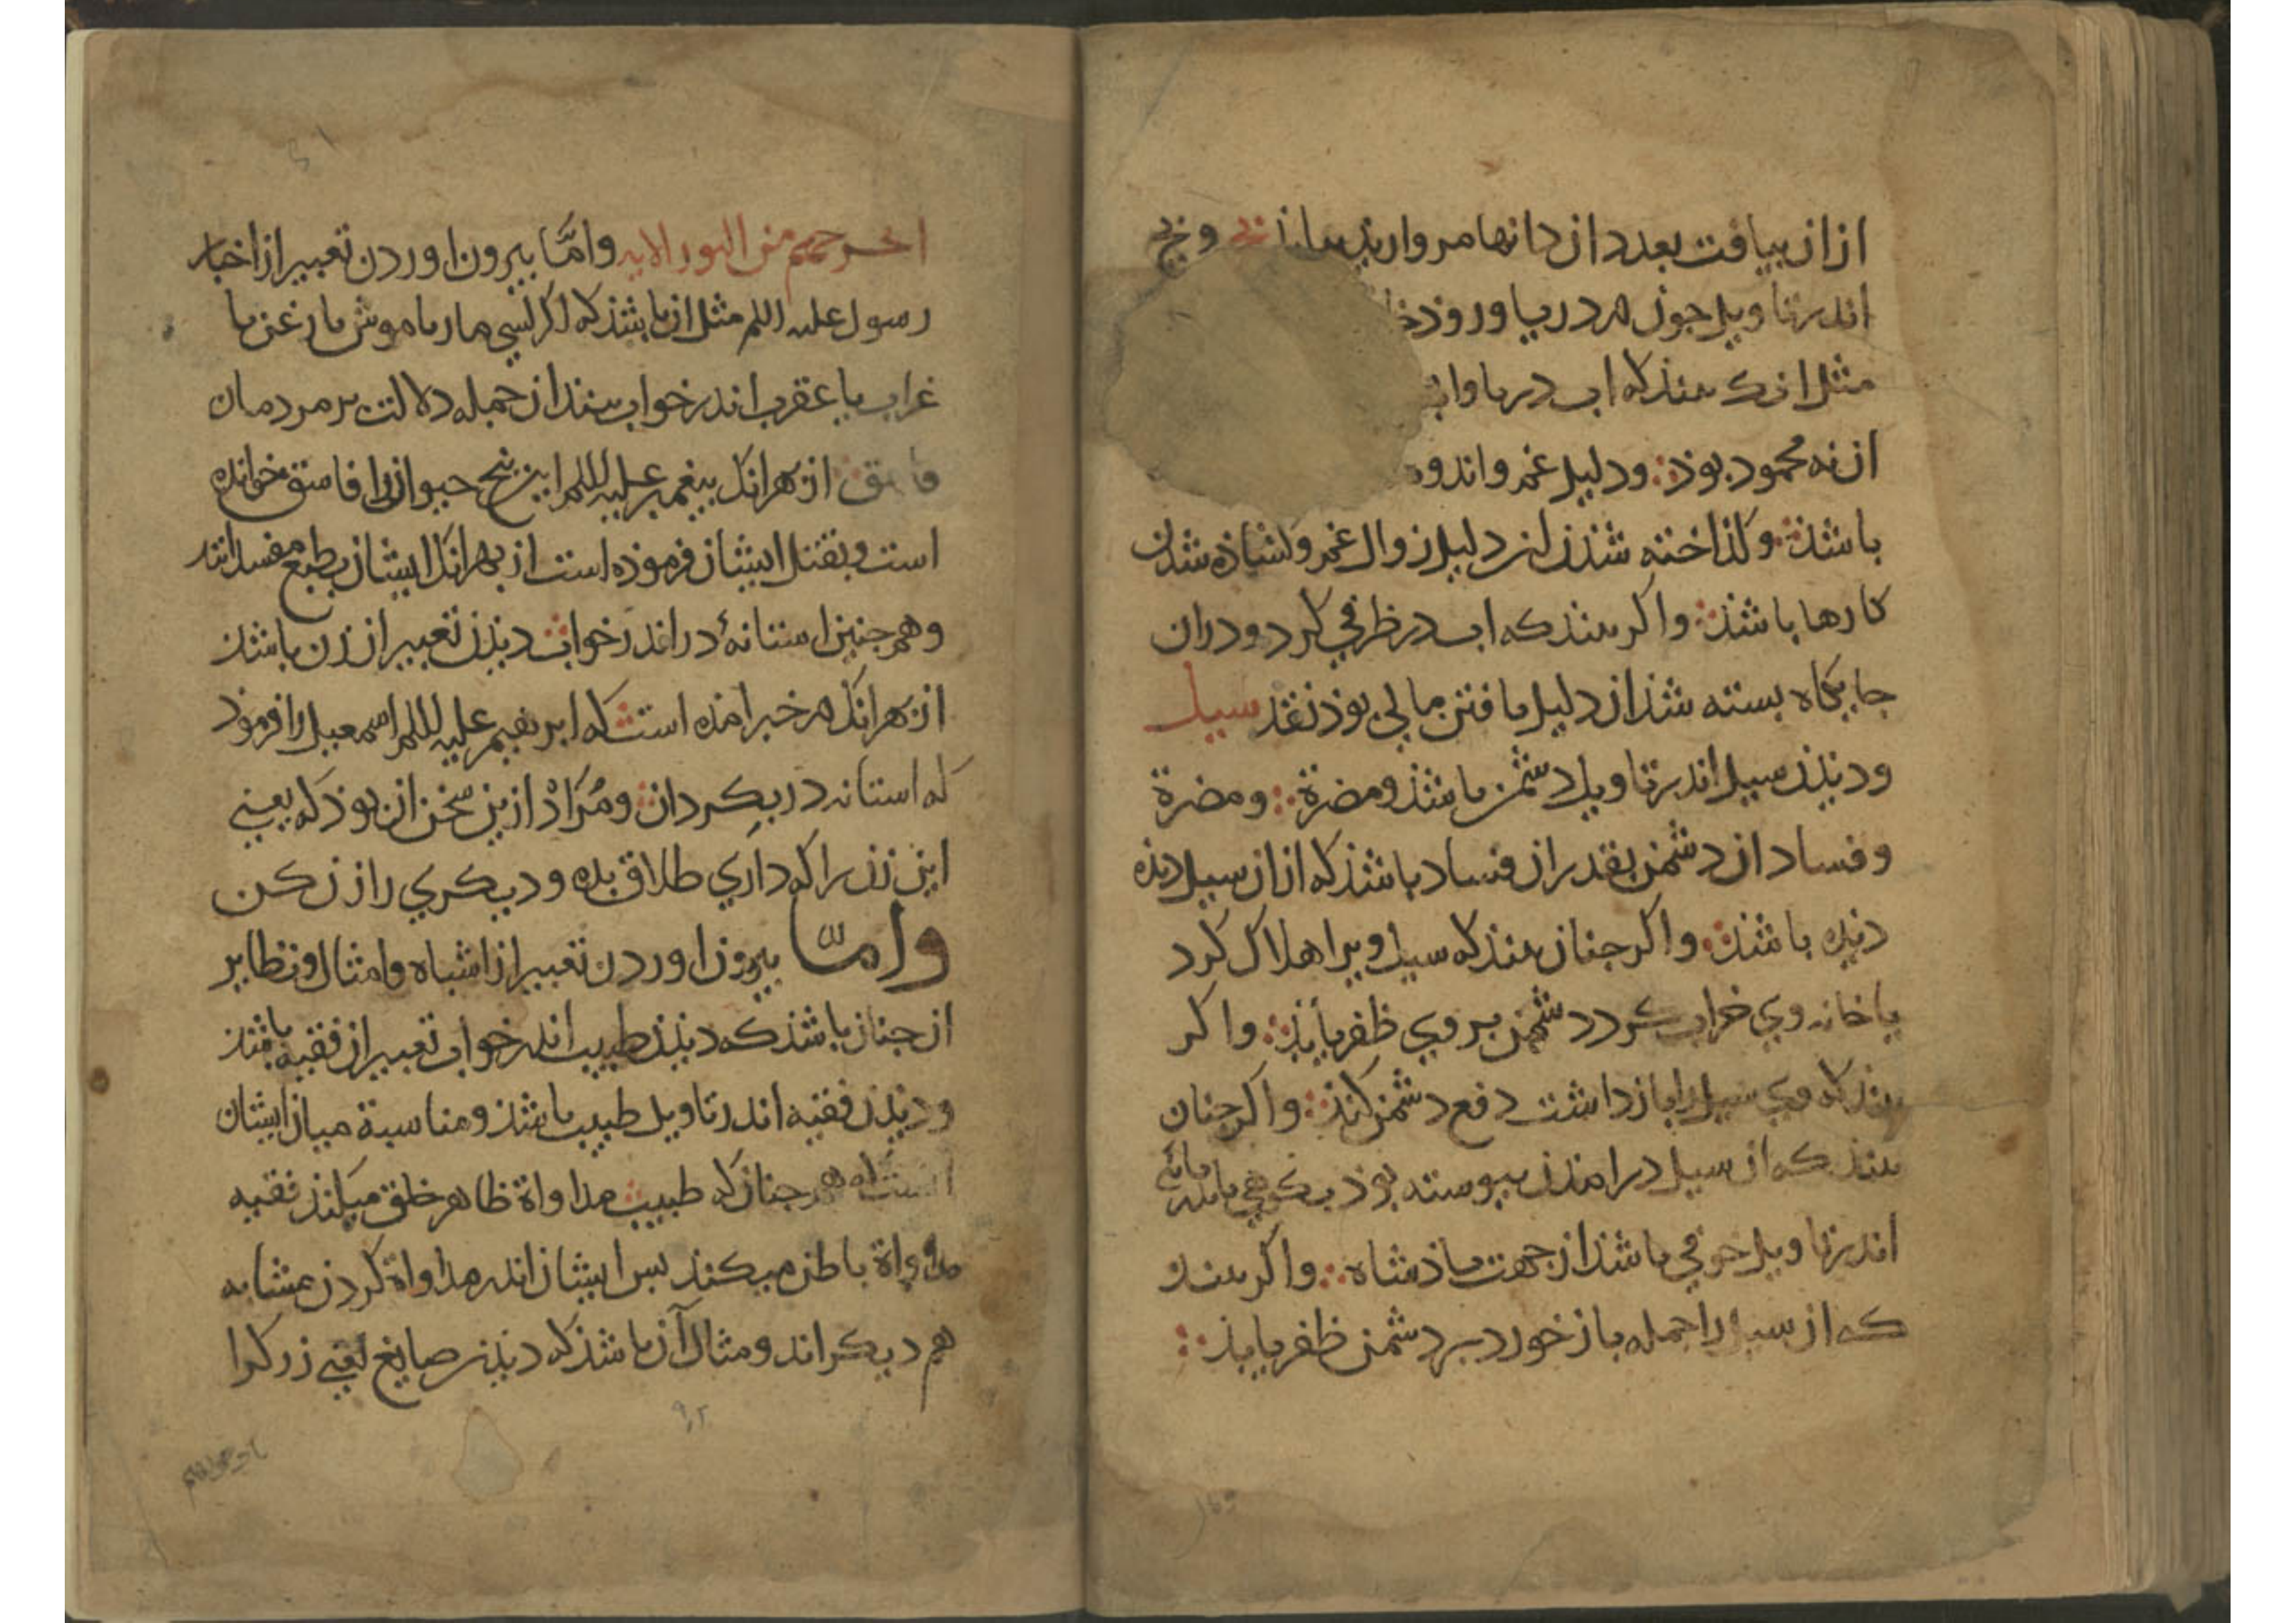 ازان بیافت بعدد ازدانها مروارید بیابذ یخ و یخ
اندر تاویل جون در دریا و روذخا
مثل انک بیند که اب دریا واب
انه محموذ بوذ ودلیل غم واندوه
باشذ وکذاخته شذن ان دلیل زوال غم وکشاذه شدن
کارها باشذ واکر بیند که اب در ظرفی کرد ودران
جایکاه بسته شذ ان دلیل یافتن مالی بوذ نقد سیل
ودیذن سیل اندر تاویل دشمن باشذ ومضرة ومضرة
وفساد ان دشمن بقدر ان فساد باشذ که ازان سیل دیذه
دیذه باشذ واکر جنان بیند که سیل ویرا هلاک کرد
یا خانه وی خراب کرد دشمن بر وی ظفر یابذ واکر
بیند که وی سیل را بازداشت دفع دشمن کنذ واکر جنان
بیند که ان سیل درامذن بیوسته بوذ بکوهی
اندر تاویل خوفی باشذ از جهت باذشاه واکر بیند
که ان سیل را جمله بازخورد بر دشمن ظفر یابذ
وامّا بیرون اوردن تعبیر از اخبار
رسول علیه السلم مثل ان باشذ که اکر کسی مار یا موش یا زغن یا
غراب یا عقرب اندر خواب بیند ان جمله دلالت بر مردمان
فاسق از بهر انک بیغمبر علیه السلم این بنج حیوان را فاسق خوانده
است وبقتل ایشان فرموذه است از بهر انک ایشان بطبع مفسداند
وهم جنین استانهٔ در اندر خواب دیذن تعبیر ان زن باشذ
از بهر انک در خبر امذه است که ابرهیم علیه السلم اسمعیل را فرموذ
که استانه در بکردان ومُراد ازین سخن ان بوذ که یعنی
این زن را که داری طلاق بده ودیکری را زن کن
وامّا بیرون اوردن تعبیر از اشباه وامثال ونظایر
ان جنان باشذ که دیذن طبیب اندر خواب تعبیر ان فقیه باشذ
ودیذن فقیه اندر تاویل طبیب باشذ ومناسبة میان ایشان
انست که هم جنان که طبیب مداواة ظاهر خلق میکند فقیه
مداواة باطن میکند بس ایشان اندر مداواة کردن مشابه
هم دیکراند ومثال آن باشذ که دیذن صایغ یعنی زرکر را
۹۲